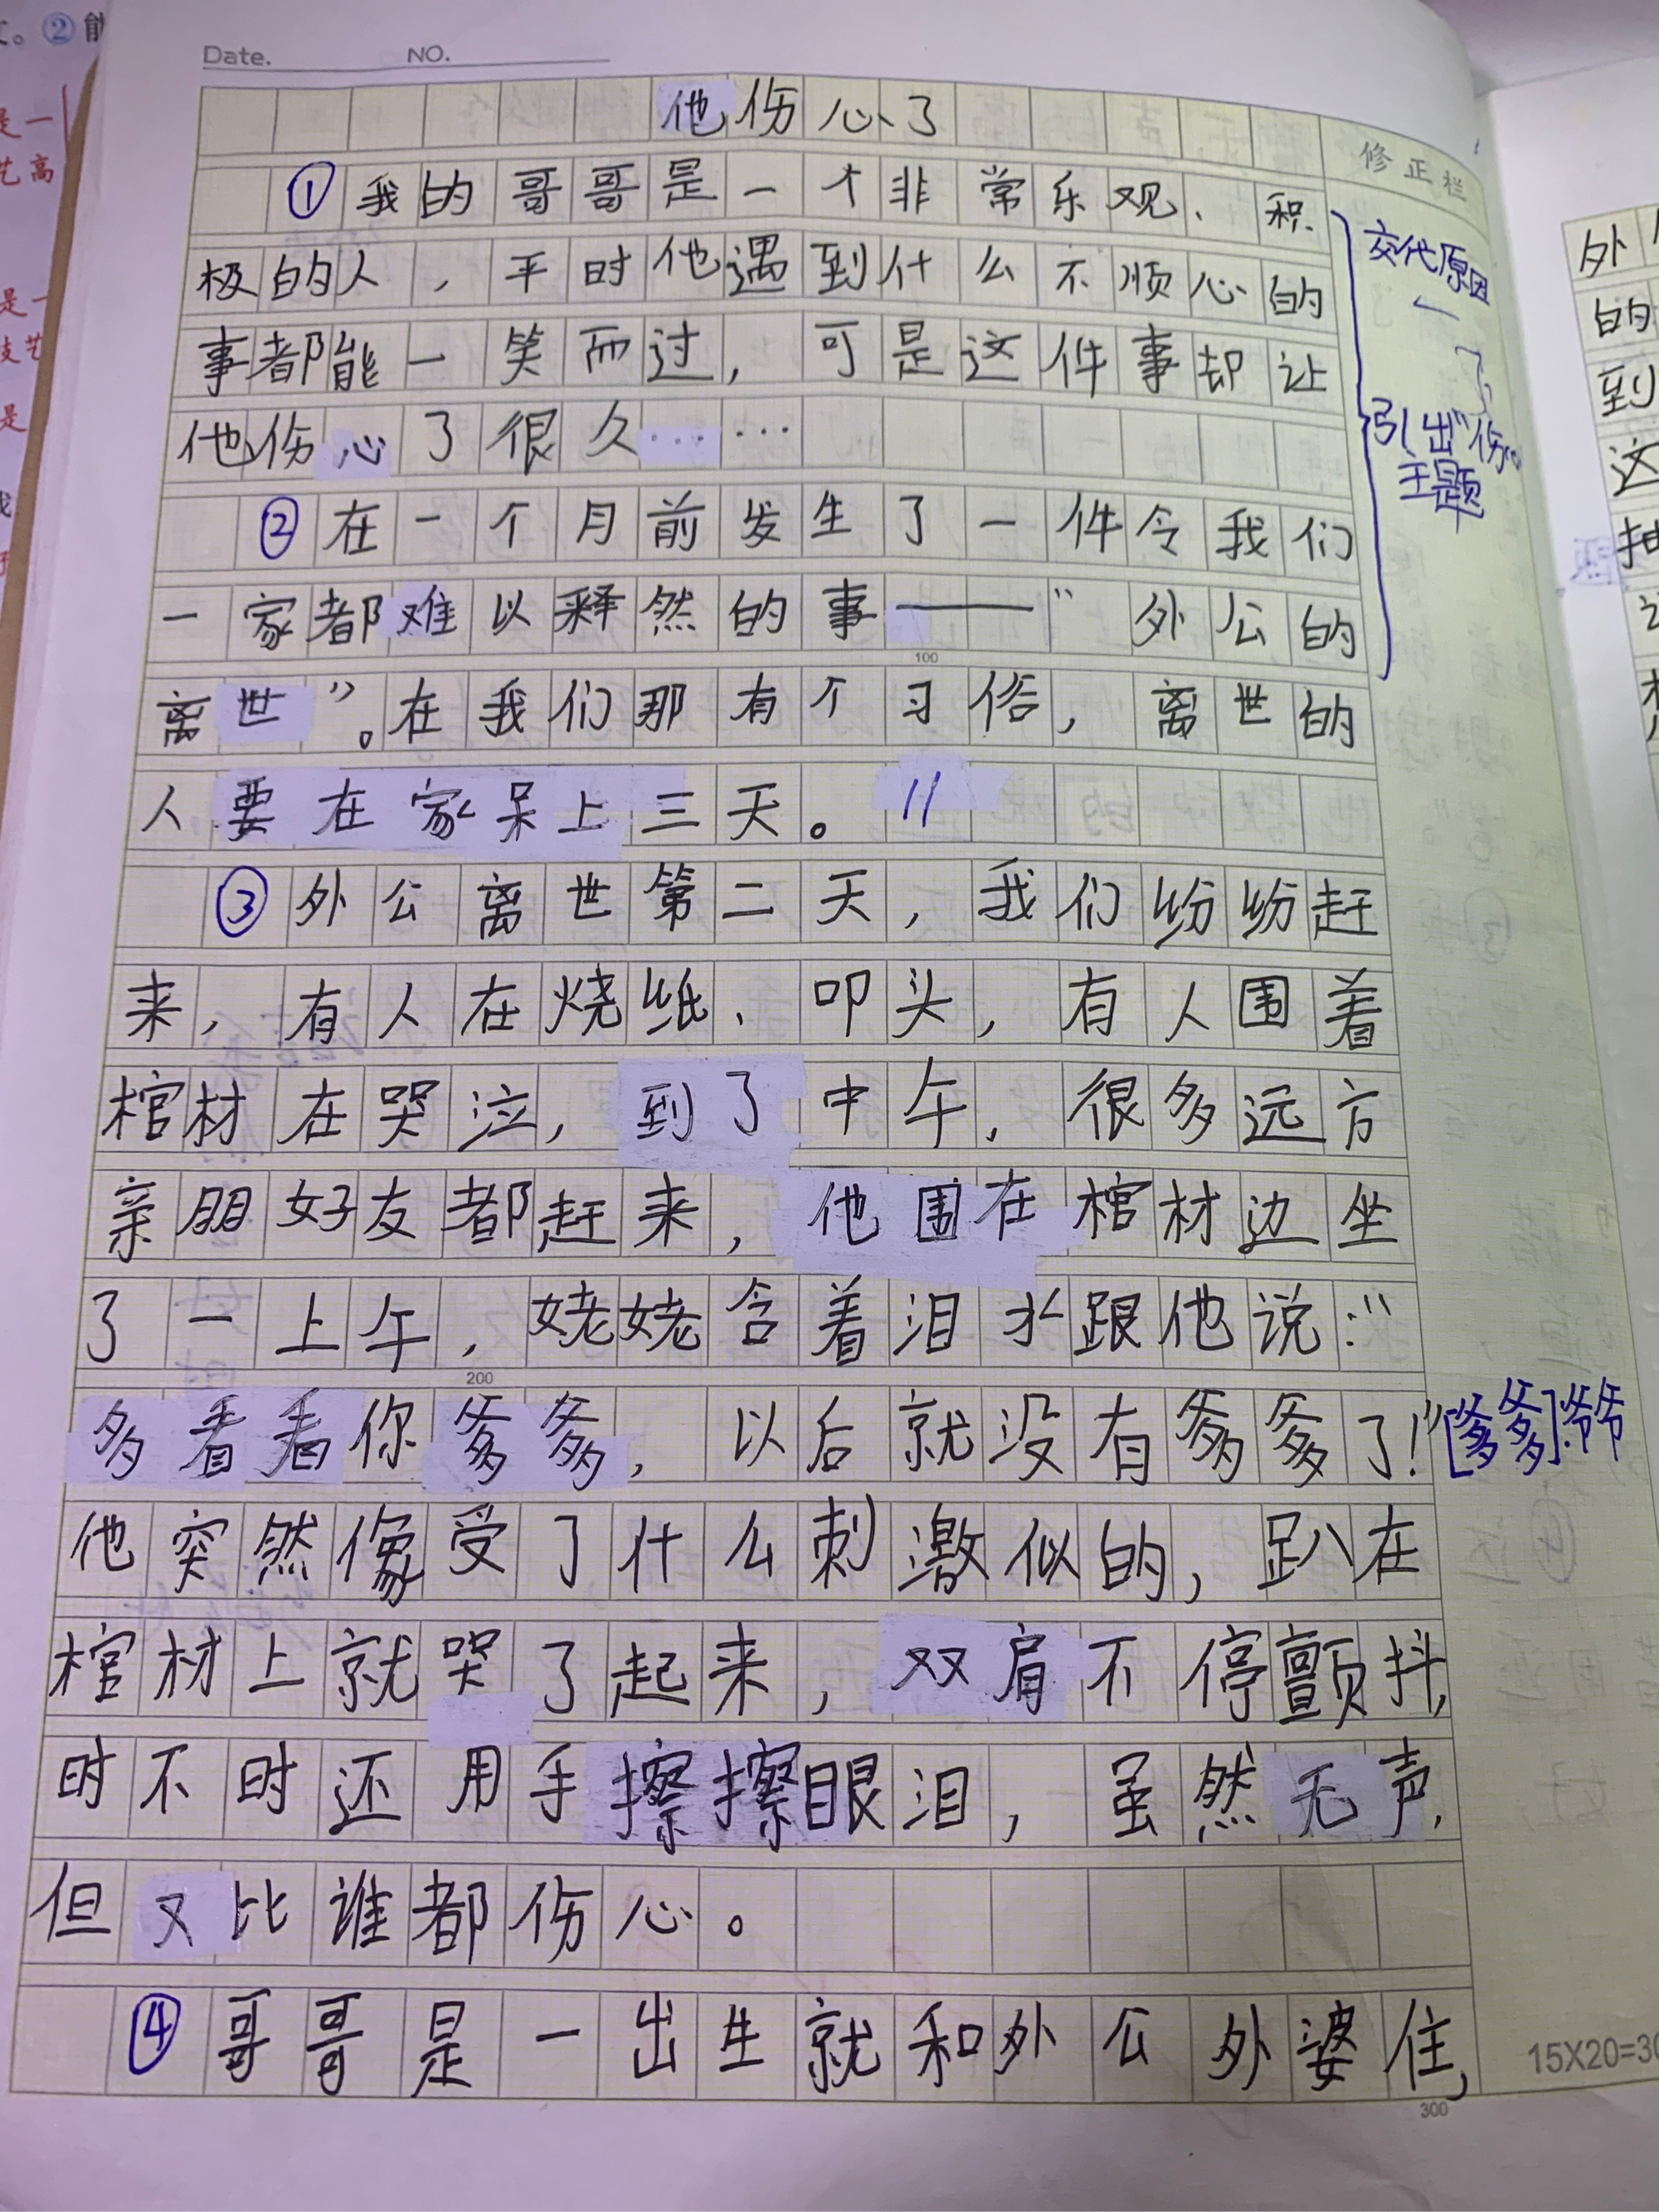 Date. NO.
他伤心了
修正栏
①我的哥哥是一个非常乐观、积
极的人，平时他遇到什么不顺心的
事都能一笑而过，可是这件事却让
他伤心了很久……
②在一个月前发生了一件令我们
一家都难以释然的事——“外公的
100
离世”。在我们那有个习俗，离世的
人要在家呆上三天。//
③外公离世第二天，我们纷纷赶
来，有人在烧纸、叩头，有人围着
棺材在哭泣，到了中午，很多远方
亲朋好友都赶来，他围在棺材边坐
了一上午，姥姥含着泪水跟他说：“
200
多看看你爹爹，以后就没有爹爹了！”
他突然像受了什么刺激似的，趴在
棺材上就哭了起来，双肩不停颤抖，
时不时还用手擦擦眼泪，虽然无声，
但又比谁都伤心。
④哥哥是一出生就和外公外婆住，
300
交代原因
引出“伤”
主题
[爹爹]:爷爷
15X20=30
②能
是一
艺高
是一
技艺
是
外
的
到
这
抽